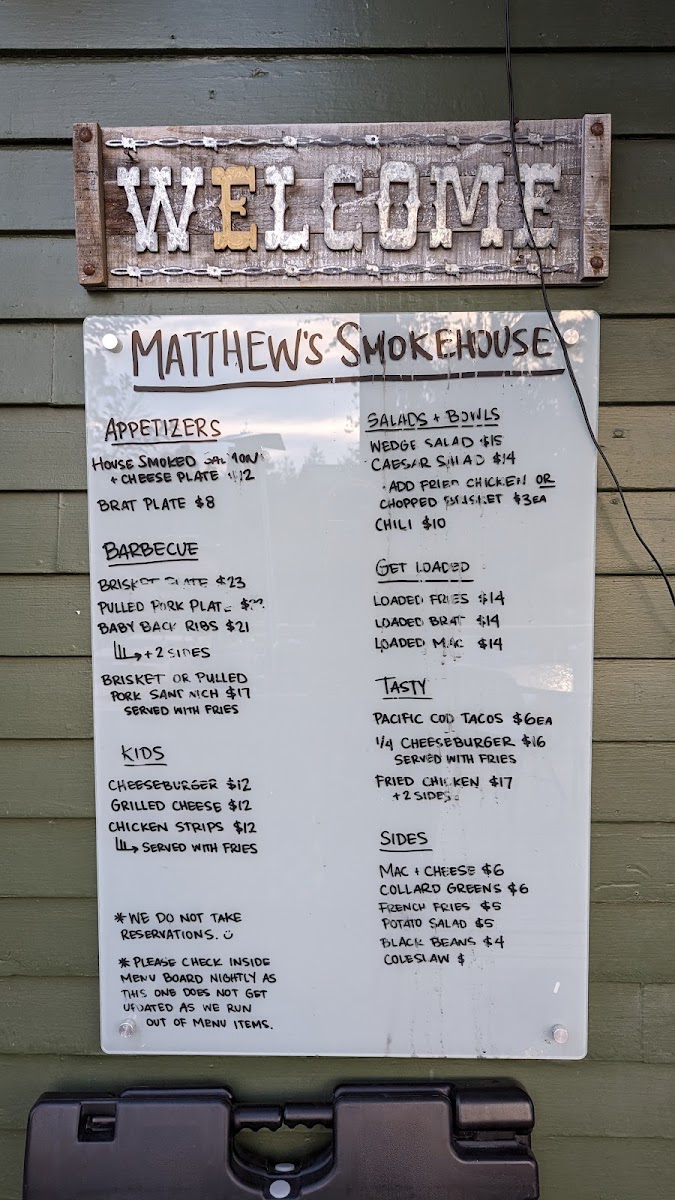 WELCOME
MATTHEW'S SMOKEHOUSE
APPETIZERS
HOUSE SMOKED SALMON
+ CHEESE PLATE
BRAT PLATE $8
BARBECUE
BRISKET PLATE $23
PULLED PORK PLATE
BABY BACK RIBS $21
+ 2 SIDES
BRISKET OR PULLED
PORK SANDWICH $17
SERVED WITH FRIES
KIDS
CHEESEBURGER $12
GRILLED CHEESE $12
CHICKEN STRIPS $12
SERVED WITH FRIES
* WE DO NOT TAKE
RESERVATIONS. ☺
* PLEASE CHECK INSIDE
MENU BOARD NIGHTLY AS
THIS ONE DOES NOT GET
UPDATED AS WE RUN
OUT OF MENU ITEMS.
SALADS + BOWLS
WEDGE SALAD $15
CAESAR SALAD $14
• ADD FRIED CHICKEN OR
CHOPPED BRISKET $3EA
CHILI $10
GET LOADED
LOADED FRIES $14
LOADED BRAT $14
LOADED MAC $14
TASTY
PACIFIC COD TACOS $6EA
1/4 CHEESEBURGER $16
SERVED WITH FRIES
FRIED CHICKEN $17
+ 2 SIDES
SIDES
MAC + CHEESE $6
COLLARD GREENS $6
FRENCH FRIES $5
POTATO SALAD $5
BLACK BEANS $4
COLESLAW $